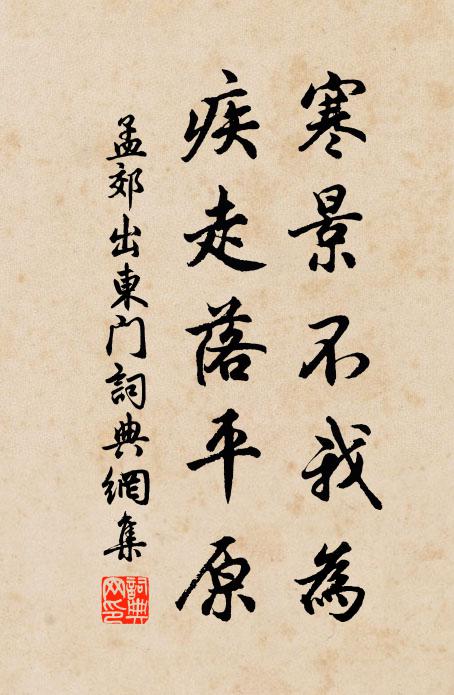 寒景不我為
疾走落平原
孟郊出東門詞典網集
詞典網印